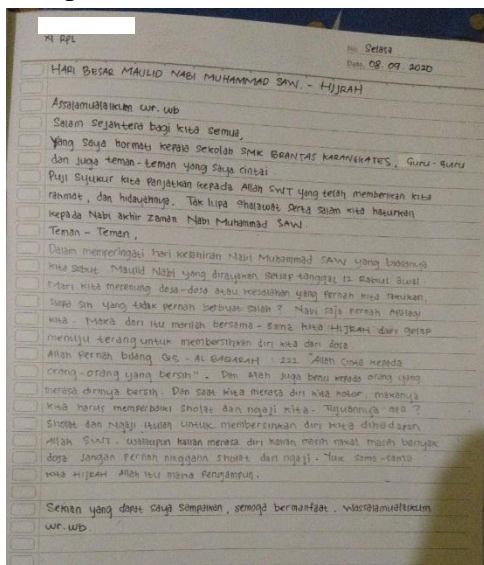 XI RPL
No. Selasa
Date. 08. 09. 2020
HARI BESAR MAULID NABI MUHAMMAD SAW. - HIJRAH
Assalamualaikum wr. wb
Salam Sejahtera bagi kita semua,
Yang saya hormati kepala sekolah SMK BRANTAS KARANGKATES, Guru-Guru
dan juga teman-teman yang saya cintai
Puji Syukur kita panjatkan kepada Allah SWT yang telah memberikan kita
rahmat, dan hidayahnya. Tak lupa shalawat serta salam kita haturkan
kepada Nabi akhir zaman Nabi Muhammad SAW
Teman - Teman,
Dalam memperingati hari kelahiran Nabi Muhammad SAW yang biasanya
kita sebut Maulid Nabi yang dirayakan setiap tanggal 12 Rabiul awal
Mari kita merenung dosa-dosa atau kesalahan yang pernah kita lakukan,
siapa sih yang tidak pernah berbuat salah ? Nabi saja pernah Apalagi
kita. Maka dari itu marilah bersama-sama kita HIJRAH dari gelap
menuju terang untuk membersihkan diri kita dari dosa
Allah pernah bilang QS - AL BAQARAH : 222 "Allah Cinta kepada
orang-orang yang bersih". Dan Allah juga benci kepada orang yang
merasa dirinya bersih. Dan saat kita merasa diri kita kotor, makanya
kita harus memperbaiki sholat dan ngaji kita. Tujuannya apa ?
Sholat dan Ngaji itulah untuk membersihkan diri kita dihadapan
Allah SWT. Walaupun kalian merasa diri kalian masih nakal masih banyak
dosa jangan pernah ninggalin sholat dan ngaji. Yuk sama-sama
kita HIJRAH Allah itu maha Pengampun.
Sekian yang dapat saya sampaikan, semoga bermanfaat. Wassalamualaikum
wr. wb.